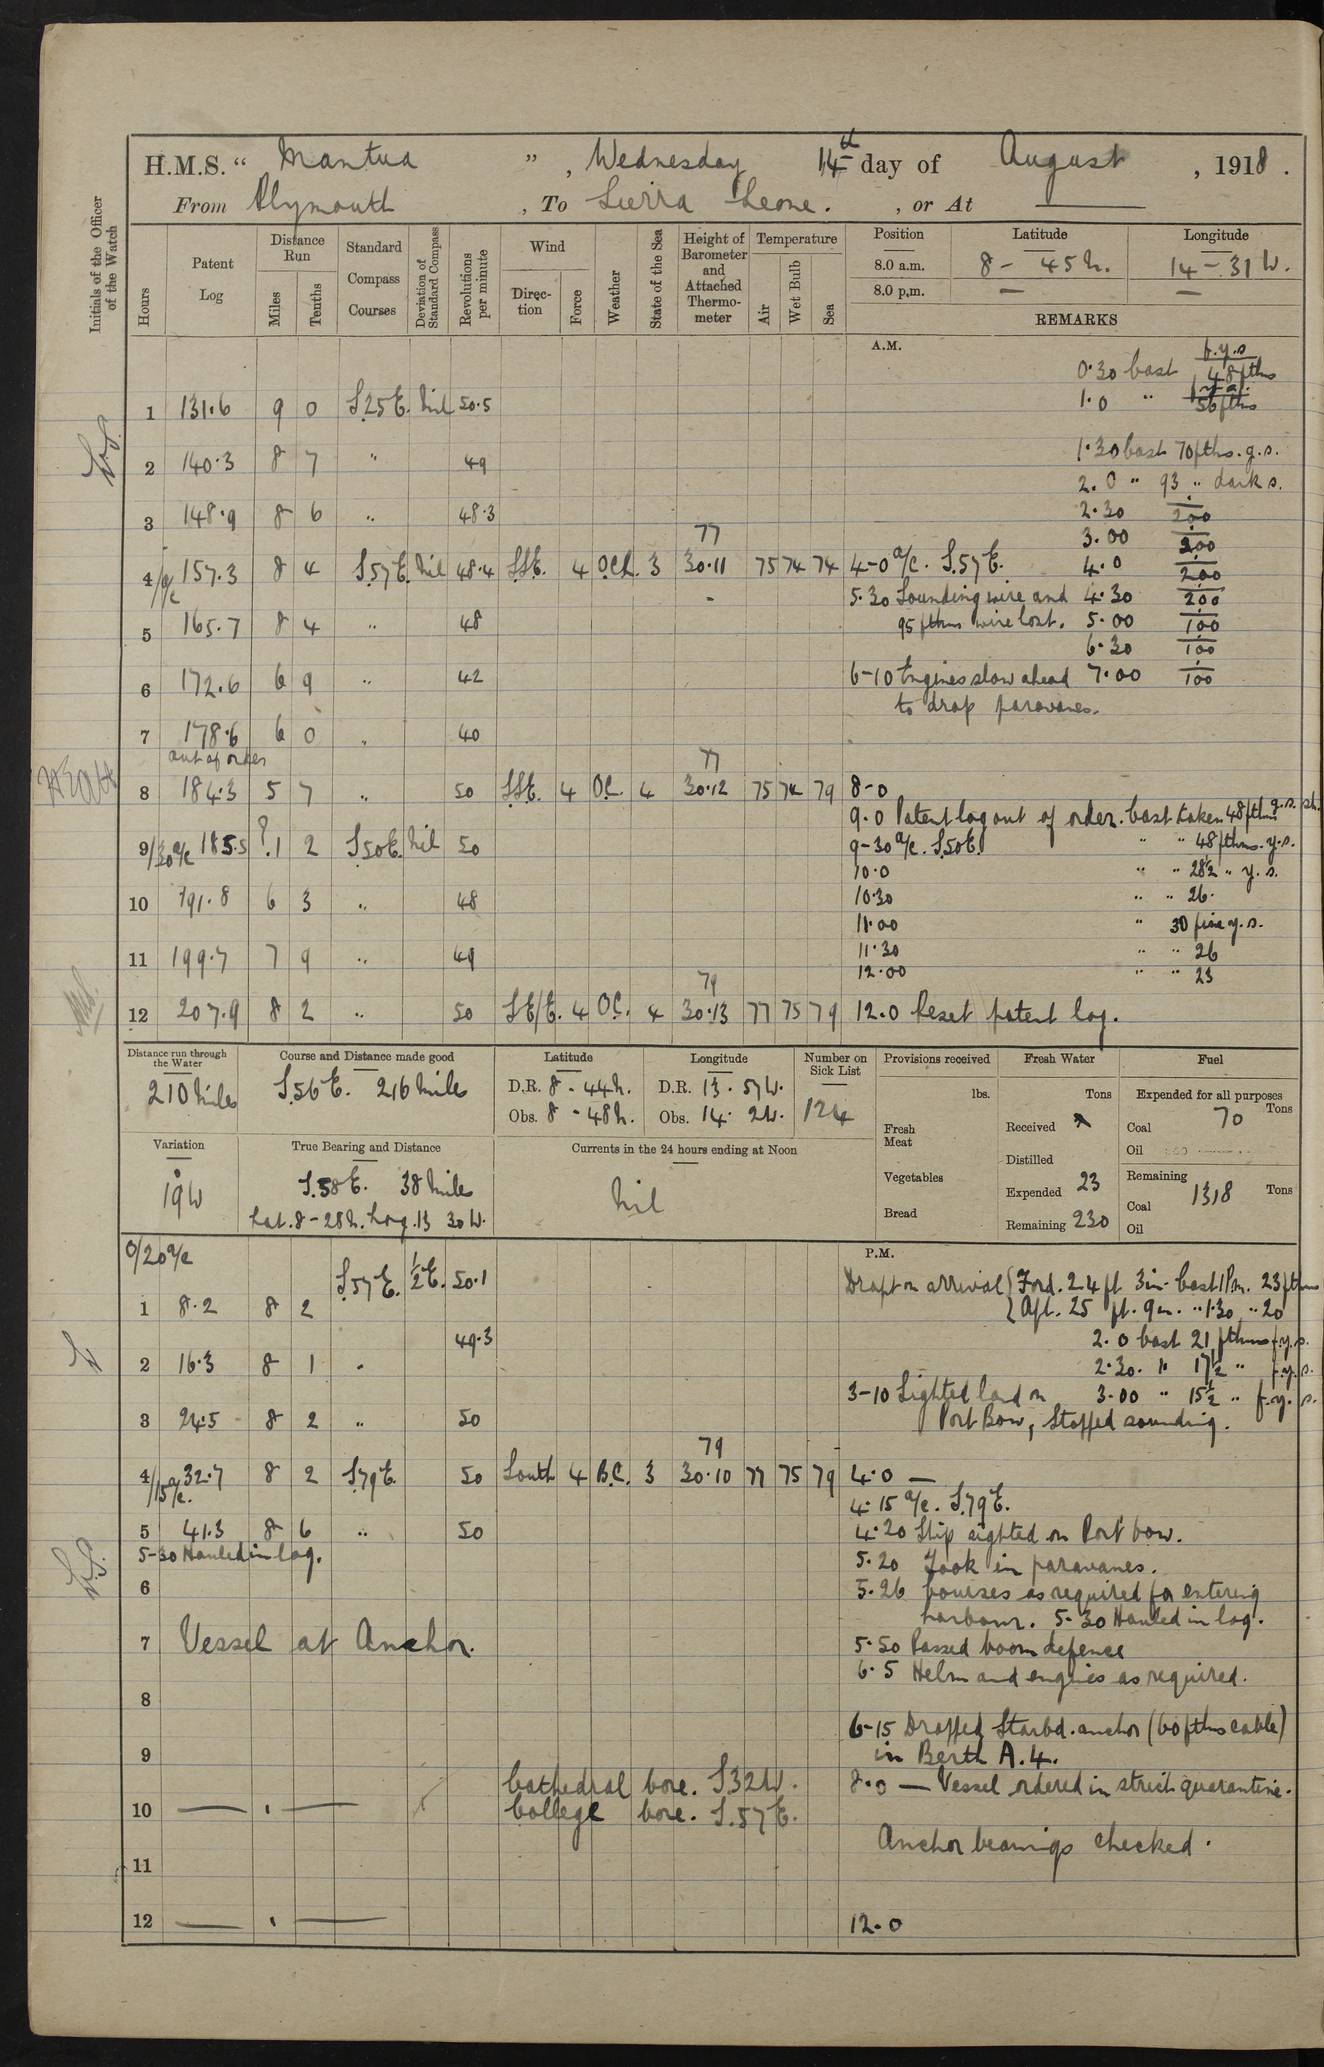 H.M.S. " Mantua ", Wednesday 14th day of August, 1918.
From Plymouth, To Sierra Leone., or At ———
Initials of the Officer of the Watch
Hours
Patent Log
Distance Run
Miles
Tenths
Standard Compass Courses
Deviation of Standard Compass
Revolutions per minute
Wind
Direction
Force
Weather
State of the Sea
Height of Barometer and Attached Thermometer
Temperature
Air
Wet Bulb
Sea
Position
Latitude
Longitude
8.0 a.m. 8 - 45 N. 14 - 31 W.
8.0 p.m. — —
REMARKS
A.M.
f.y.s
0.30 Cast 48 fthms
1 131.6 9 0 S.25E. Nil 50.5
1.0 " 56 fths
1.30 Cast 70 fths. g.s.
2 140.3 8 7 " 49
2.0 " 93 " dark s.
3 148.9 8 6 " 48.3
2.30 200
3.00 200
77
4 a/c 157.3 8 4 S.57E. Nil 48.4 SSE. 4 OCL. 3 30.11 75 74 74 4-0 a/c. S.57E. 4.0 200
5.30 Sounding wire and 4.30 200
5 165.7 8 4 " 48
95 fthms wire lost. 5.00 100
6.30 100
6 172.6 6 9 " 42 6-10 Engines slow ahead 7.00 100
to drop paravanes.
7 178.6 6 0 " 40
out of order
77
8 184.3 5 7 " 50 SSE. 4 OC. 4 30.12 75 74 79 8-0
9.0 Patent log out of order. Cast taken 48 fthms g.s. sh.
9/30 a/c 185.5 ?.1 2 S50E. Nil 50 9-30 a/c. S.50E. " " 48 fthms. y.s.
10.0 " " 28½ " y.s.
10 191.8 6 3 " 48 10.30 " " 26.
11.00 " 30 fine y.s.
11 199.7 7 9 " 49 11.30 " " 26
12.00 " " 23
79
12 207.9 8 2 " 50 SE/E. 4 OC. 4 30.13 77 75 79 12.0 Reset patent log.
Distance run through the Water
210 Miles
Course and Distance made good
S.56E. 216 Miles
Latitude
D.R. 8 - 44 N.
Obs. 8 - 48 N.
Longitude
D.R. 13. 57 W.
Obs. 14. 2 W.
Number on Sick List
124
Provisions received
lbs.
Fresh Meat
Vegetables
Bread
Fresh Water
Tons
Received
Distilled
Expended 23
Remaining 230
Fuel
Expended for all purposes
Tons
Coal 70
Oil
Remaining
Coal 1318 Tons
Oil
Variation
19 W
True Bearing and Distance
S.58E. 38 Miles
Lat. 8 - 28 N. Long. 13 30 W.
Currents in the 24 hours ending at Noon
Nil
P.M.
0/20 a/c
S.57E. ½E. 50.1
Draft on arrival { Ford. 24 ft 3 in. Cast 1 P.m. 23 fthms
1 8.2 8 2
{ Aft. 25 ft. 9 in. " 1.30 " 20
49.3
2.0 Cast 21 fthms f.y.s.
2 16.3 8 1 "
2.30. " 17½ " f.y.s.
3-10 Sighted land on 3.00 " 15½ " f.y.s.
3 24.5 8 2 " 50
Port Bow, Stopped sounding.
79
4/15 a/c. 32.7 8 2 S.79E. 50 South 4 B.C. 3 30.10 77 75 79 4.0 —
4.15 a/c. S.79E.
5 41.3 8 6 " 50 4.20 Ship sighted on Port bow.
5-30 Hauled in log.
5.20 Took in paravanes.
6
5.26 Courses as required for entering
harbour. 5-30 Hauled in log.
7 Vessel at Anchor.
5.50 Passed boom defence
6.5 Helm and engines as required.
8
6-15 Dropped Starbd. anchor (60 fths cable)
9
in Berth A.4.
Cathedral bore. S32W.
8.0 — Vessel ordered in strict quarantine.
10 College bore. S.57E.
Anchor bearings checked.
11
12 12.0